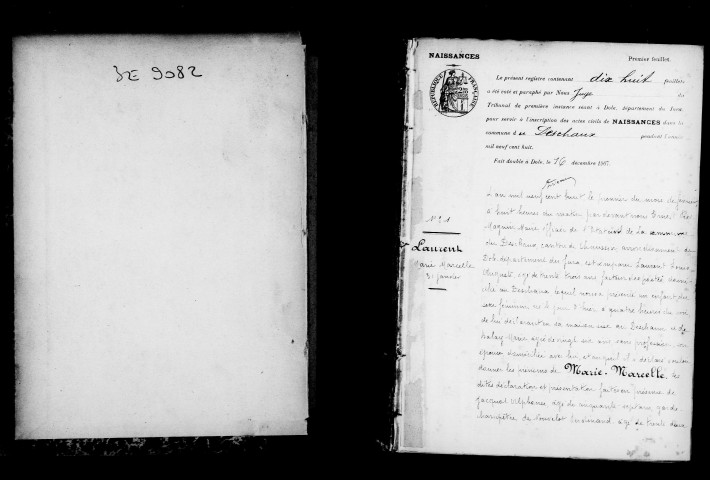 3E 9082
NAISSANCES
Premier feuillet.
RÉPUBLIQUE FRANÇAISE
Le présent registre contenant dix huit feuillets
a été coté et paraphé par Nous Juge du
Tribunal de première instance séant à Dole, département du Jura
pour servir à l'inscription des actes civils de NAISSANCES dans la
commune d u Deschaux pendant l'année
mil neuf cent huit.
Fait double à Dole, le 16 décembre 1907.
L'an mil neuf cent huit le premier du mois de janvier
à huit heures du matin par devant nous Ernest
Maire officier de l'Etat civil de La commune
du Deschaux canton de Chaussin arrondissement de
Dole département du Jura est comparu Laurent Louis
Auguste âgé de trente trois ans facteur des postes
au Deschaux lequel nous a présenté un enfant du
sexe féminin né le jour d'hier à quatre heures du soir
de lui déclarant en sa maison sise au Deschaux et de
Marie âgée de vingt six ans sans profession, son
épouse domiciliée avec lui, et auquel il a déclaré vouloir
donner les prénoms de Marie-Marcelle, les
dites déclaration et présentation faites en présence de
Jacquot Alphonse, âgé de cinquante sept ans, garde
champêtre, de Ferdinand, âgé de trente deux
N° 1
Laurent
Marie Marcelle
1er janvier